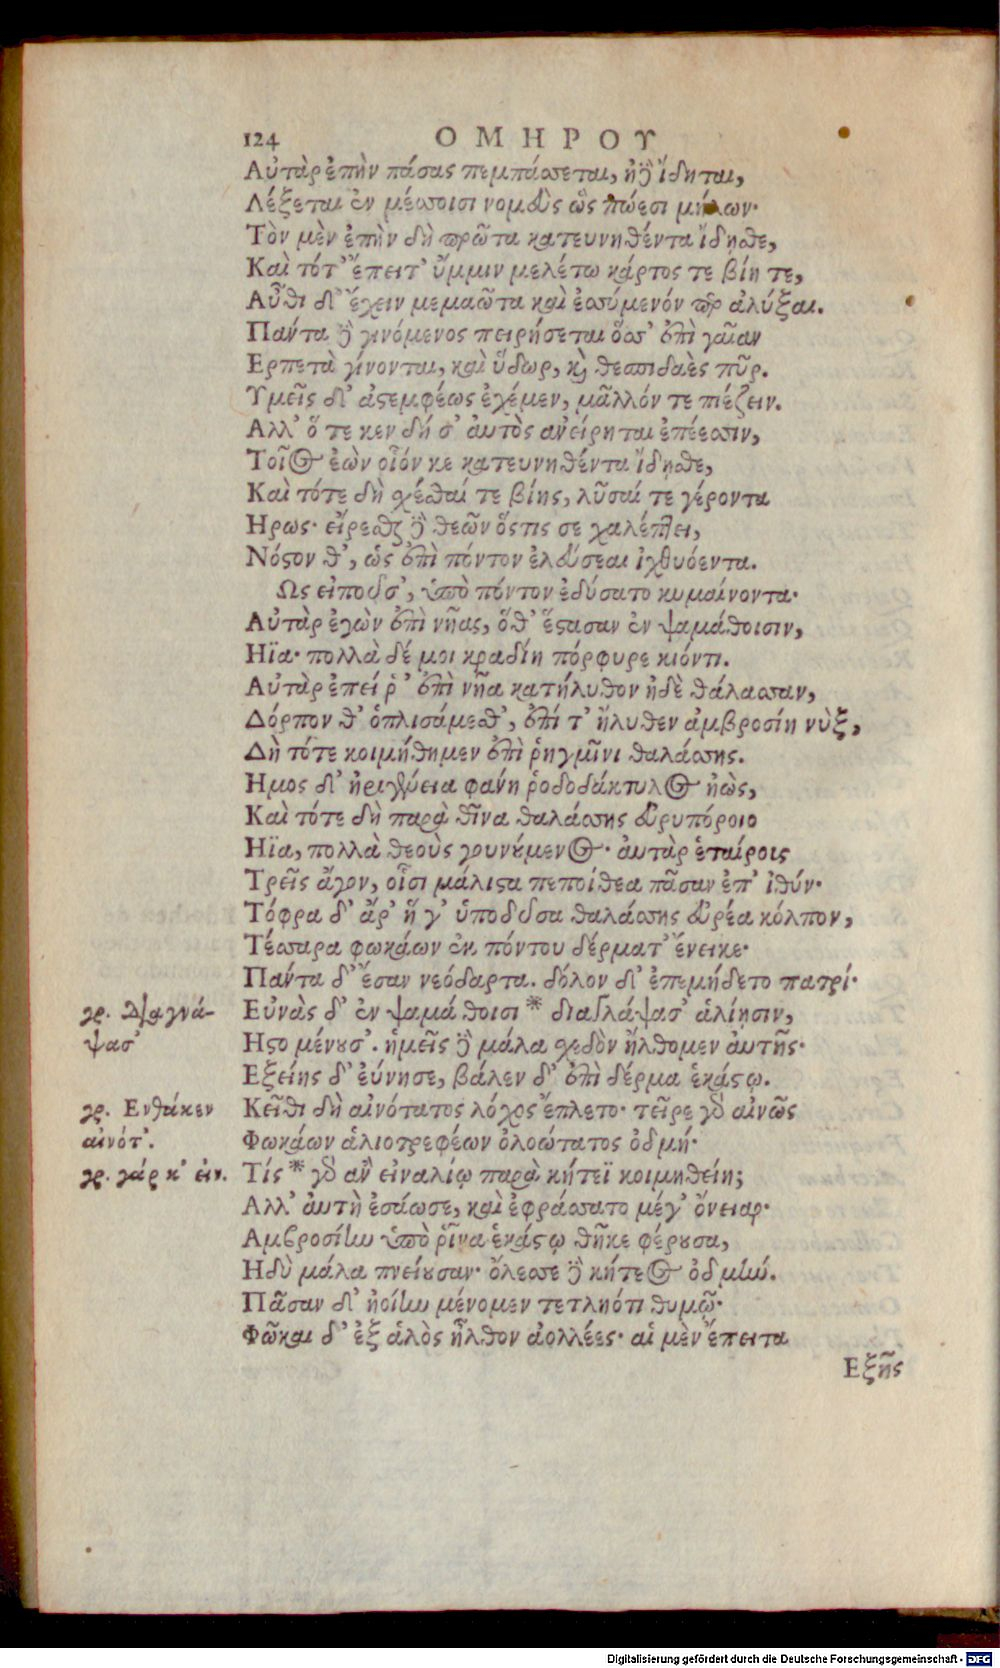 124 ΟΜΗΡΟΥ
Αὐτὰρ ἐπὴν πάσας πεμπάσσεται, ἠδὲ ἴδηται,
Λέξεται ἐν μέσσοισι νομεὺς ὣς πώεσι μήλων·
Τὸν μὲν ἐπὴν δὴ πρῶτα κατευνηθέντα ἴδησθε,
Καὶ τότ' ἔπειτ' ὔμμιν μελέτω κάρτος τε βίη τε,
Αὖθι δ' ἔχειν μεμαῶτα καὶ ἐσσύμενόν περ ἀλύξαι.
Πάντα δὲ γινόμενος πειρήσεται ὅσσ' ἐπὶ γαῖαν
Ερπετὰ γίνονται, καὶ ὕδωρ, καὶ θεσπιδαὲς πῦρ.
Υμεῖς δ' ἀστεμφέως ἐχέμεν, μᾶλλόν τε πιέζειν.
Αλλ' ὅ τε κεν δή σ' αὐτὸς ἀνείρηται ἐπέεσσιν,
Τοῖος ἐὼν οἷόν κε κατευνηθέντα ἴδησθε,
Καὶ τότε δὴ σχέσθαί τε βίης, λῦσαί τε γέροντα
Ηρως· εἴρεσθαι δὲ θεῶν ὅστις σε χαλέπτει,
Νόστον θ', ὡς ἐπὶ πόντον ἐλεύσεαι ἰχθυόεντα.
Ως εἰποῦσ', ὑπὸ πόντον ἐδύσατο κυμαίνοντα·
Αὐτὰρ ἐγὼν ἐπὶ νῆας, ὅθ' ἕστασαν ἐν ψαμάθοισιν,
Ηϊα· πολλὰ δέ μοι κραδίη πόρφυρε κιόντι.
Αὐτὰρ ἐπεί ῥ' ἐπὶ νῆα κατήλυθον ἠδὲ θάλασσαν,
Δόρπον θ' ὁπλισάμεσθ', ἐπί τ' ἤλυθεν ἀμβροσίη νὺξ,
Δὴ τότε κοιμήθημεν ἐπὶ ῥηγμῖνι θαλάσσης.
Ημος δ' ἠριγένεια φάνη ῥοδοδάκτυλος ἠὼς,
Καὶ τότε δὴ παρὰ θῖνα θαλάσσης εὐρυπόροιο
Ηϊα, πολλὰ θεοὺς γουνούμενος· αὐτὰρ ἑταίροις
Τρεῖς ἄγον, οἷσι μάλιστα πεποίθεα πᾶσαν ἐπ' ἰθύν·
Τόφρα δ' ἄρ' ἥ γ' ὑποδῦσα θαλάσσης εὐρέα κόλπον,
Τέσσαρα φωκάων ἐκ πόντου δέρματ' ἔνεικε·
Πάντα δ' ἔσαν νεόδαρτα. δόλον δ' ἐπεμήδετο πατρί·
γρ. Διαγνά-
ψασ'
Εὐνὰς δ' ἐν ψαμάθοισι * διαγλάψασ' ἁλίησιν,
Ηστο μένουσ'. ἡμεῖς δὲ μάλα σχεδὸν ἤλθομεν αὐτῆς·
Εξείης δ' εὔνησε, βάλεν δ' ἐπὶ δέρμα ἑκάστῳ.
γρ. Ενθάκεν
αἰνότ'.
Κεῖθι δὴ αἰνότατος λόχος ἔπλετο· τεῖρε γὰρ αἰνῶς
Φωκάων ἁλιοτρεφέων ὀλοώτατος ὀδμή·
γρ. γάρ κ' εἰν.
Τίς * γὰρ ἂν εἰναλίῳ παρὰ κήτεϊ κοιμηθείη;
Αλλ' αὐτὴ ἐσάωσε, καὶ ἐφράσσατο μέγ' ὄνειαρ·
Αμβροσίην ὑπὸ ῥῖνα ἑκάστῳ θῆκε φέρουσα,
Ηδὺ μάλα πνείουσαν· ὄλεσσε δὲ κήτεος ὀδμήν.
Πᾶσαν δ' ἠοίην μένομεν τετληότι θυμῷ·
Φῶκαι δ' ἐξ ἁλὸς ἦλθον ἀολλέες· αἱ μὲν ἔπειτα
Εξῆς
Digitalisierung gefördert durch die Deutsche Forschungsgemeinschaft - DFG